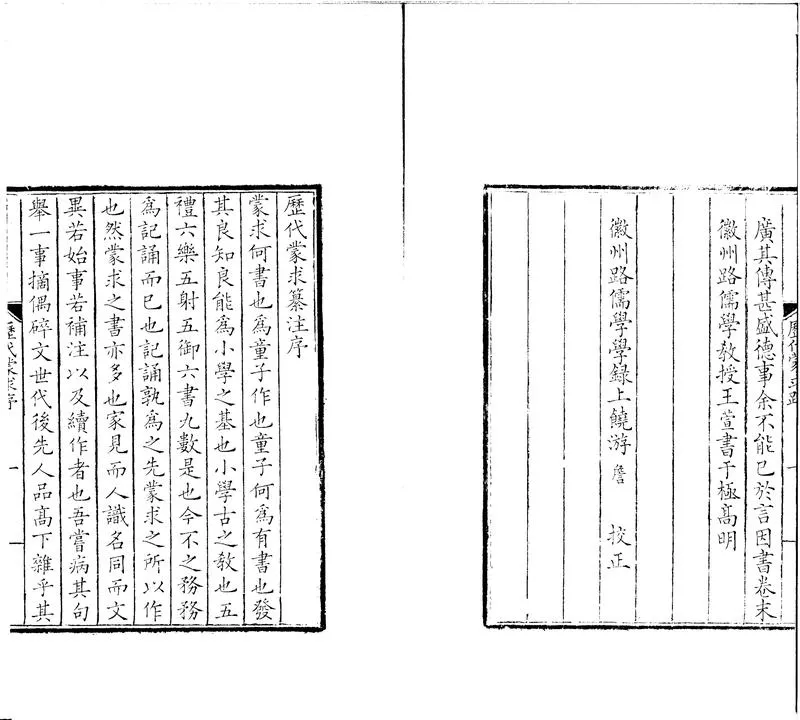 廣其傳甚盛德事余不能已於言因書卷末
徽州路儒學教授王萱書于極髙明
徽州路儒學學録上饒游詹 校正
歷代蒙求纂注序
蒙求何書也爲童子作也童子何爲有書也發
其良知良能爲小學之基也小學古之教也五
禮六樂五射五御六書九數是也今不之務務
爲記誦而已也記誦孰爲之先蒙求之所以作
也然蒙求之書亦多也家見而人識名同而文
異若始事若補注以及續作者也吾嘗病其句
舉一事摘偶碎文世代後先人品髙下雜乎其
歷代蒙求序